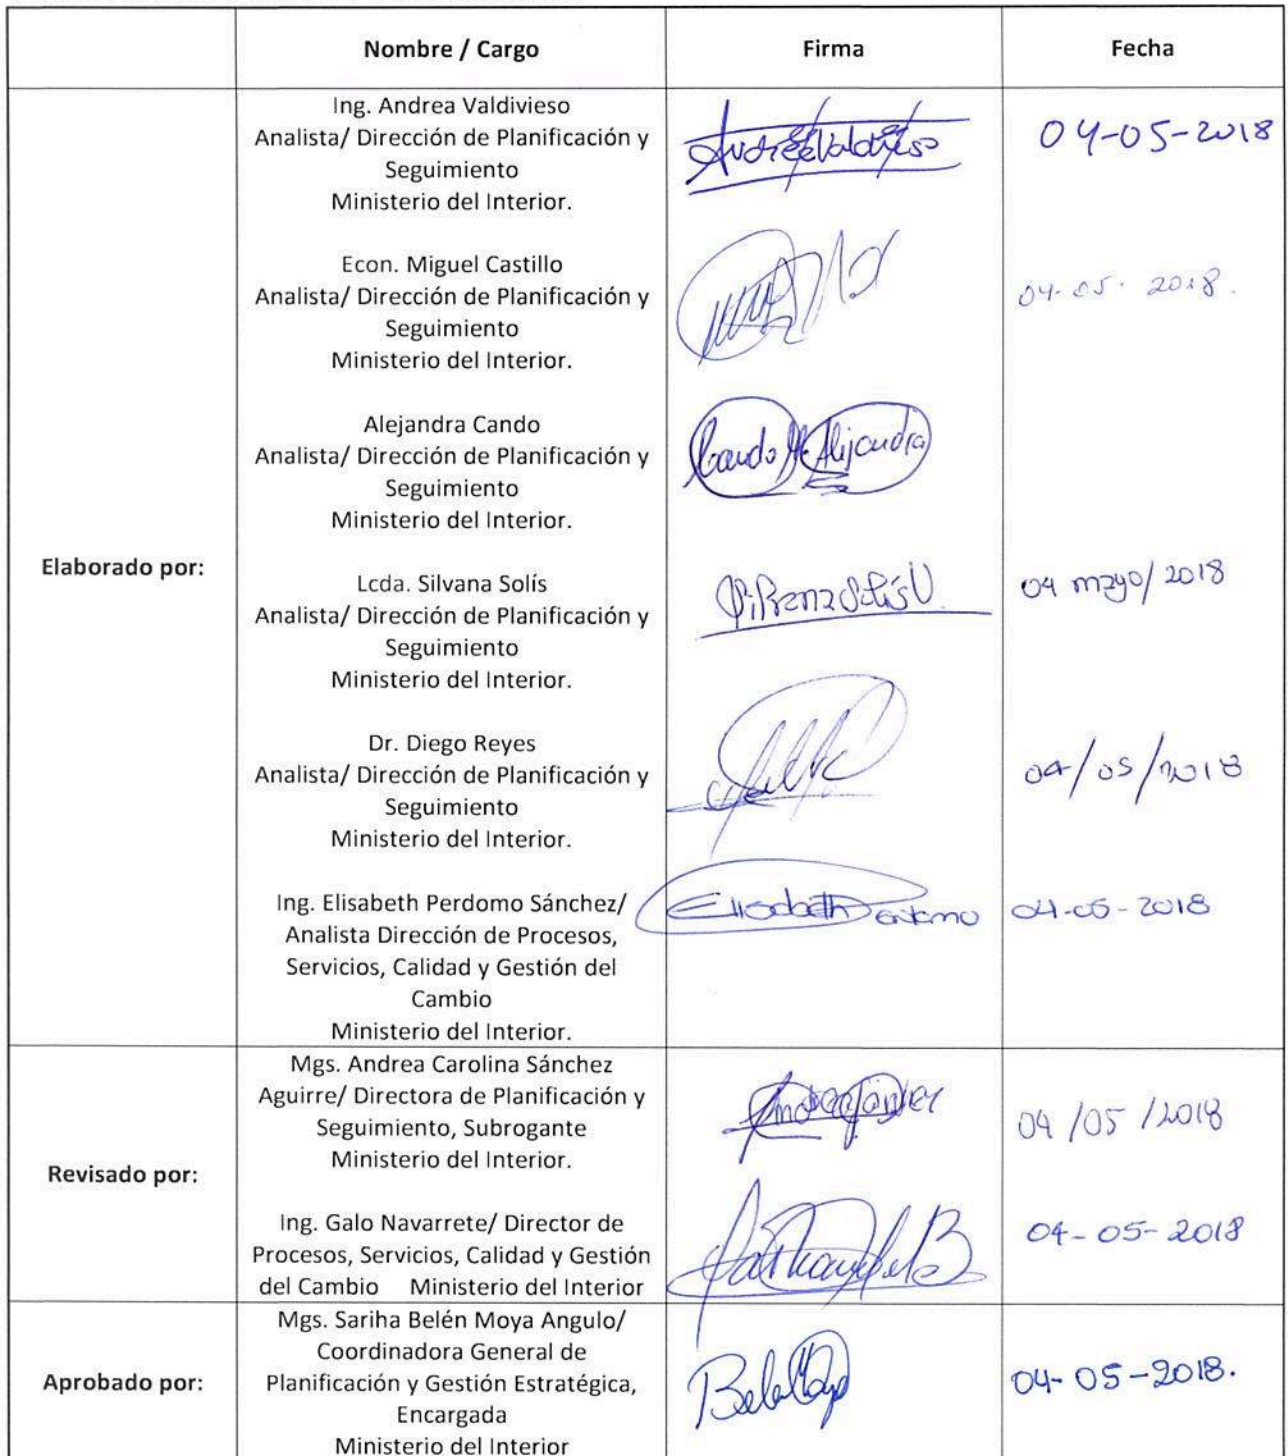 Nombre / Cargo Firma Fecha
Ing. Andrea Valdivieso
Analista/ Dirección de Planificación y
Seguimiento
Ministerio del Interior.
Andrea Valdivieso
04-05-2018
Econ. Miguel Castillo
Analista/ Dirección de Planificación y
Seguimiento
Ministerio del Interior.
04-05-2018.
Alejandra Cando
Analista/ Dirección de Planificación y
Seguimiento
Ministerio del Interior.
Cando Alejandra
Elaborado por:
Lcda. Silvana Solís
Analista/ Dirección de Planificación y
Seguimiento
Ministerio del Interior.
04 mayo/2018
Dr. Diego Reyes
Analista/ Dirección de Planificación y
Seguimiento
Ministerio del Interior.
04/05/2018
Ing. Elisabeth Perdomo Sánchez/
Analista Dirección de Procesos,
Servicios, Calidad y Gestión del
Cambio
Ministerio del Interior.
Elisabeth Perdomo
04-05-2018
Revisado por:
Mgs. Andrea Carolina Sánchez
Aguirre/ Directora de Planificación y
Seguimiento, Subrogante
Ministerio del Interior.
04/05/2018
Ing. Galo Navarrete/ Director de
Procesos, Servicios, Calidad y Gestión
del Cambio Ministerio del Interior
04-05-2018
Aprobado por:
Mgs. Sariha Belén Moya Angulo/
Coordinadora General de
Planificación y Gestión Estratégica,
Encargada
Ministerio del Interior
04-05-2018.